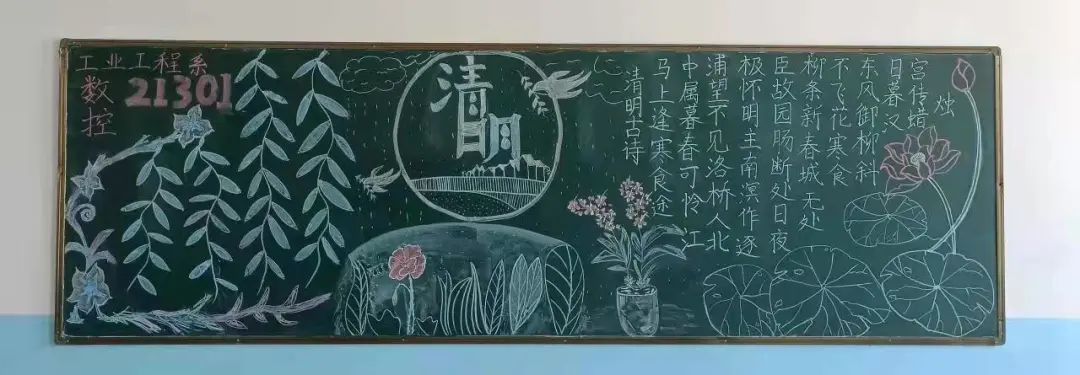 工业工程系
数控
21301
清明
清明古诗
马上逢寒食途
中属暮春可怜江
浦望不见洛桥人北
极怀明主南溟作逐
臣故园肠断处日夜
柳条新春城无处
不飞花寒食
东风御柳斜
日暮汉
宫传蜡
烛